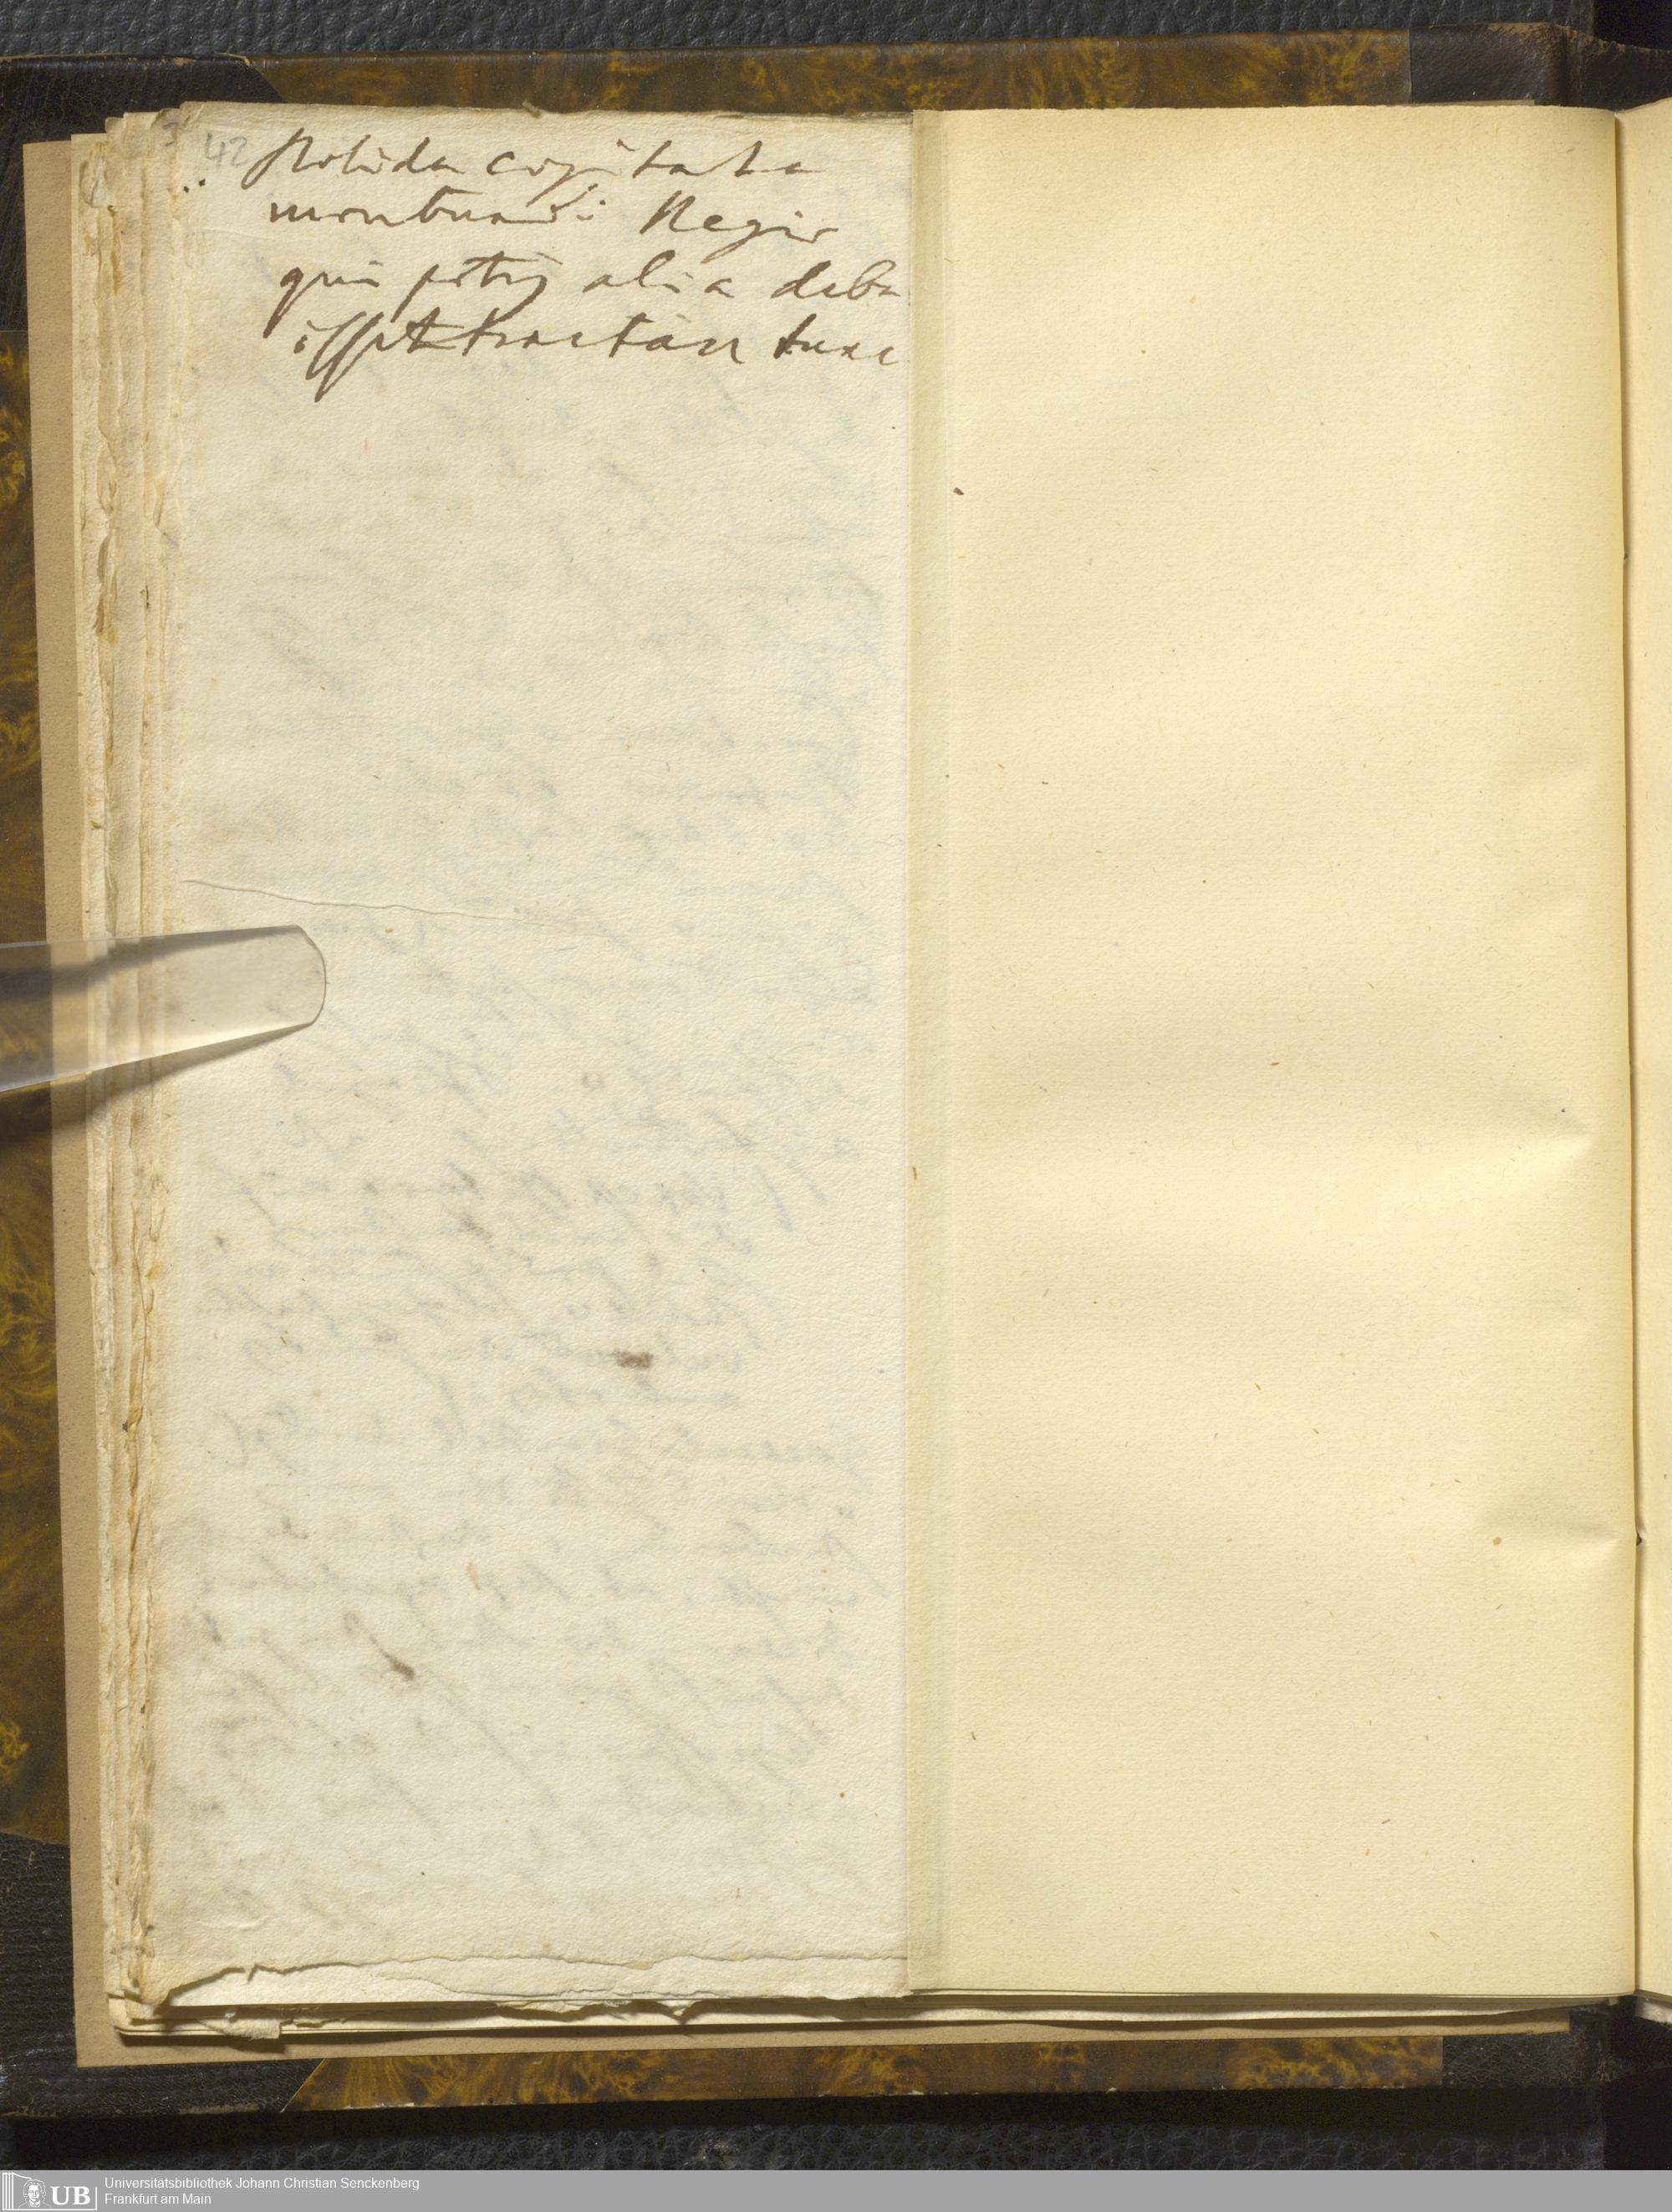 42 Stolida cogitata
moribundi Regis
qui potius alia debu
isset tractare tunc
UB Universitätsbibliothek Johann Christian Senckenberg
Frankfurt am Main